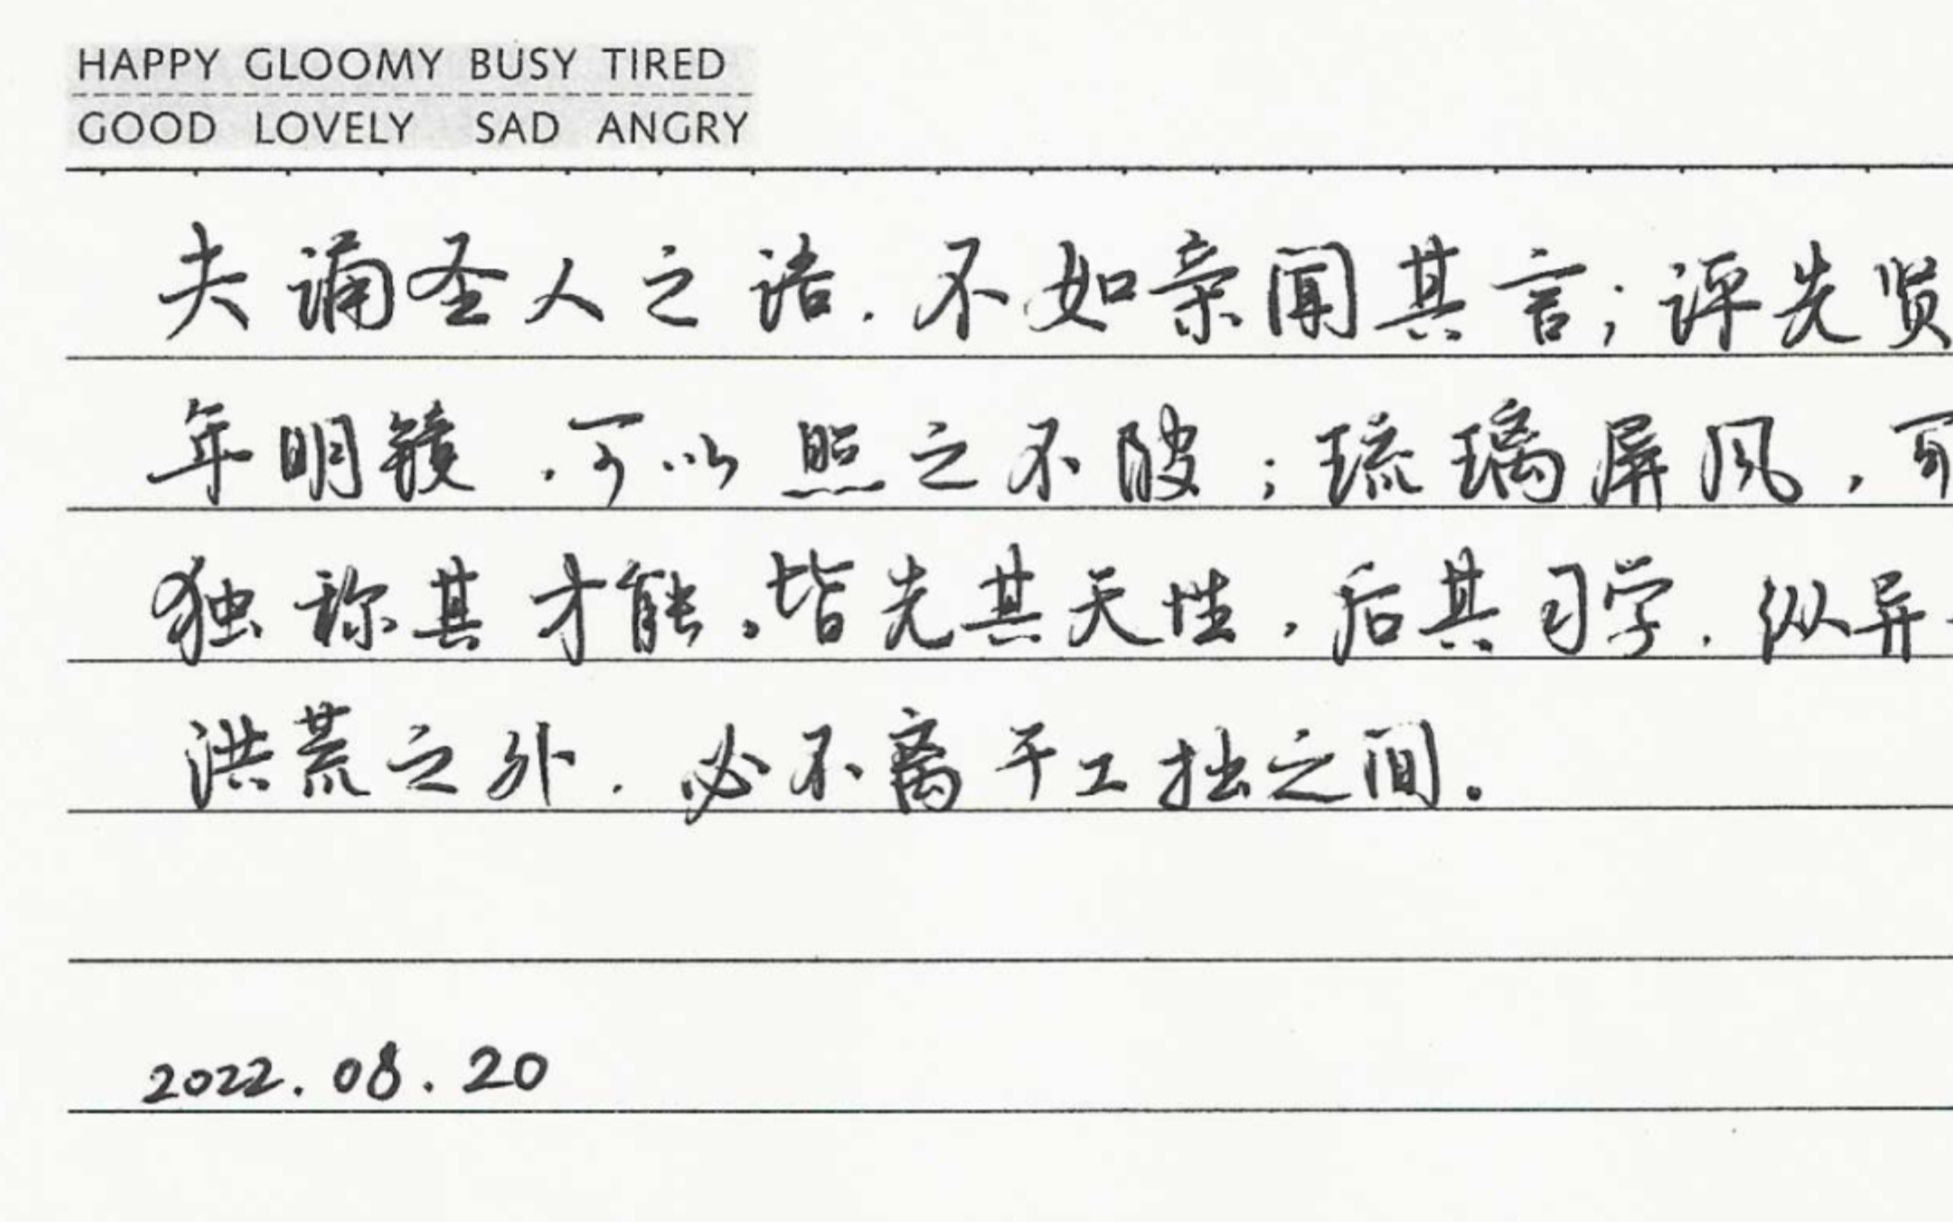 HAPPY GLOOMY BUSY TIRED
GOOD LOVELY SAD ANGRY
夫诵圣人之语，不如亲闻其言；评先贤
年明镜，可以照之不陂；琉璃屏风，可
独称其才能，皆先其天性，后其习学，纵异
洪荒之外，必不离于工拙之间。
2022.08.20